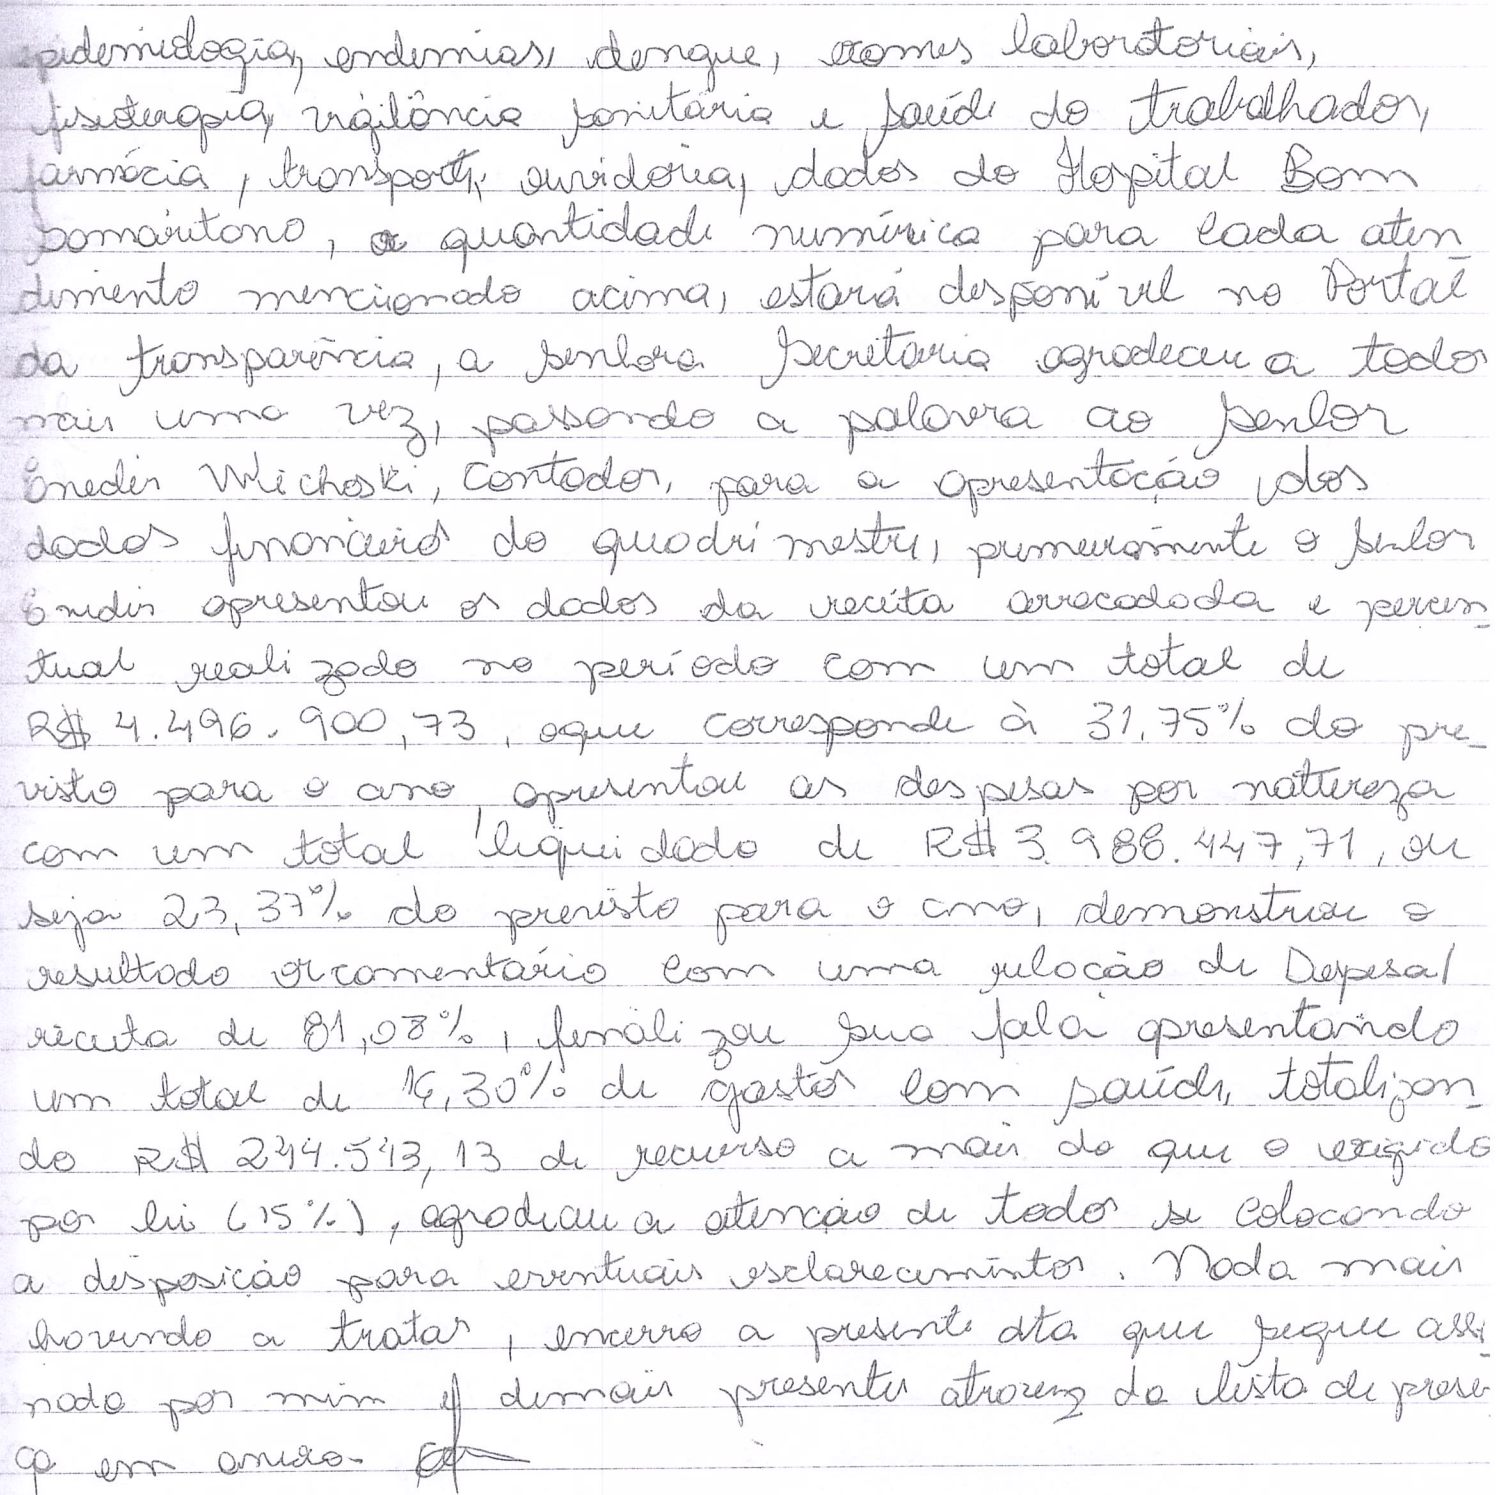 epidemiologia, endemias, dengue, exames laboratoriais,
fisioterapia, vigilância sanitária e saúde do trabalhador,
farmácia, transporte, ouvidoria, dados do Hospital Bom
Samaritano, a quantidade numérica para cada aten-
dimento mencionado acima, estará disponível no Portal
da transparência, a senhora Secretária agradeceu a todos
mais uma vez, passando a palavra ao senhor
Enedir Michoski, Contador, para a apresentação dos
dados financeiros do quadrimestre, primeiramente o senhor
Enedir apresentou os dados da receita arrecadada e percen-
tual realizado no período com um total de
R$ 4.496.900,73, oque corresponde à 31,75% do pre-
visto para o ano, apresentou as despesas por nattureza
com um total liquidado de R$ 3.986.447,71, ou
seja 23,37% do previsto para o ano, demonstrou o
resultado orcamentário com uma relação de Despesa/
receita de 81,08%, finalizou sua fala apresentando
um total de 16,30% de gastos com saúde, totalizan-
do R$ 244.543,13 de recurso a mais do que o exigido
por lei (15%), agradeceu a atenção de todos se colocando
a disposição para eventuais esclarecimentos. Nada mais
havendo a tratar, encerro a presente ata que segue assi-
nada por mim e demais presentes atravez da lista de presen
ça em anexo.